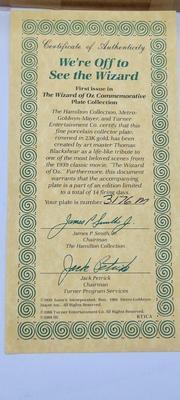 Certificate of Authenticity
We're Off to
See the Wizard
First issue in
The Wizard of Oz Commemorative
Plate Collection
The Hamilton Collection, Metro-
Goldwyn-Mayer, and Turner
Entertainment Co. certify that this
fine porcelain collector plate,
rimmed in 23K gold, has been
created by art master Thomas
Blackshear as a life-like tribute to
one of the most beloved scenes from
the 1939 classic movie, "The Wizard
of Oz." Furthermore, this document
warrants that the accompanying
plate is a part of an edition limited
to a total of 14 firing days.
Your plate is number
James P. Smith, Jr.
James P. Smith, Jr.
Chairman
The Hamilton Collection
Jack Petrick
Jack Petrick
Chairman
Turner Program Services
Inc. Ren. 1966 Metro-Goldwyn-
Mayer Inc. All Rights Reserved.
©1988 Turner Entertainment Co. All Rights Reserved.